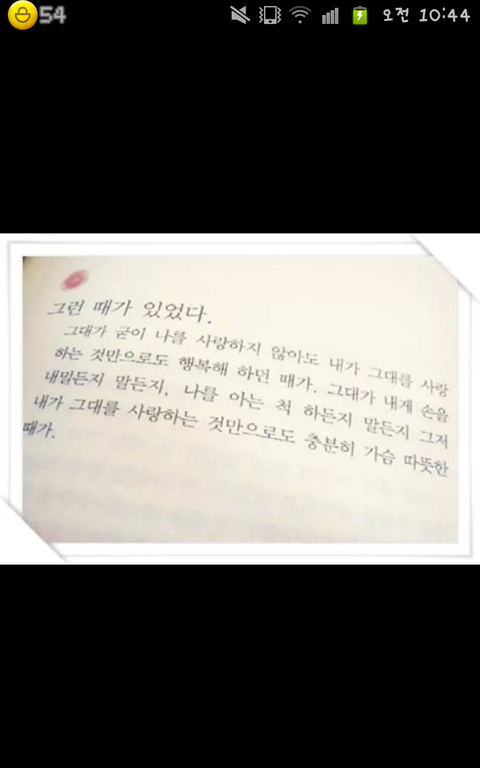 54
오전 10:44
그런 때가 있었다.
그대가 굳이 나를 사랑하지 않아도 내가 그대를 사랑
하는 것만으로도 행복해 하던 때가. 그대가 내게 손을
내밀든지 말든지, 나를 아는 척 하든지 말든지 그저
내가 그대를 사랑하는 것만으로도 충분히 가슴 따뜻한
때가.